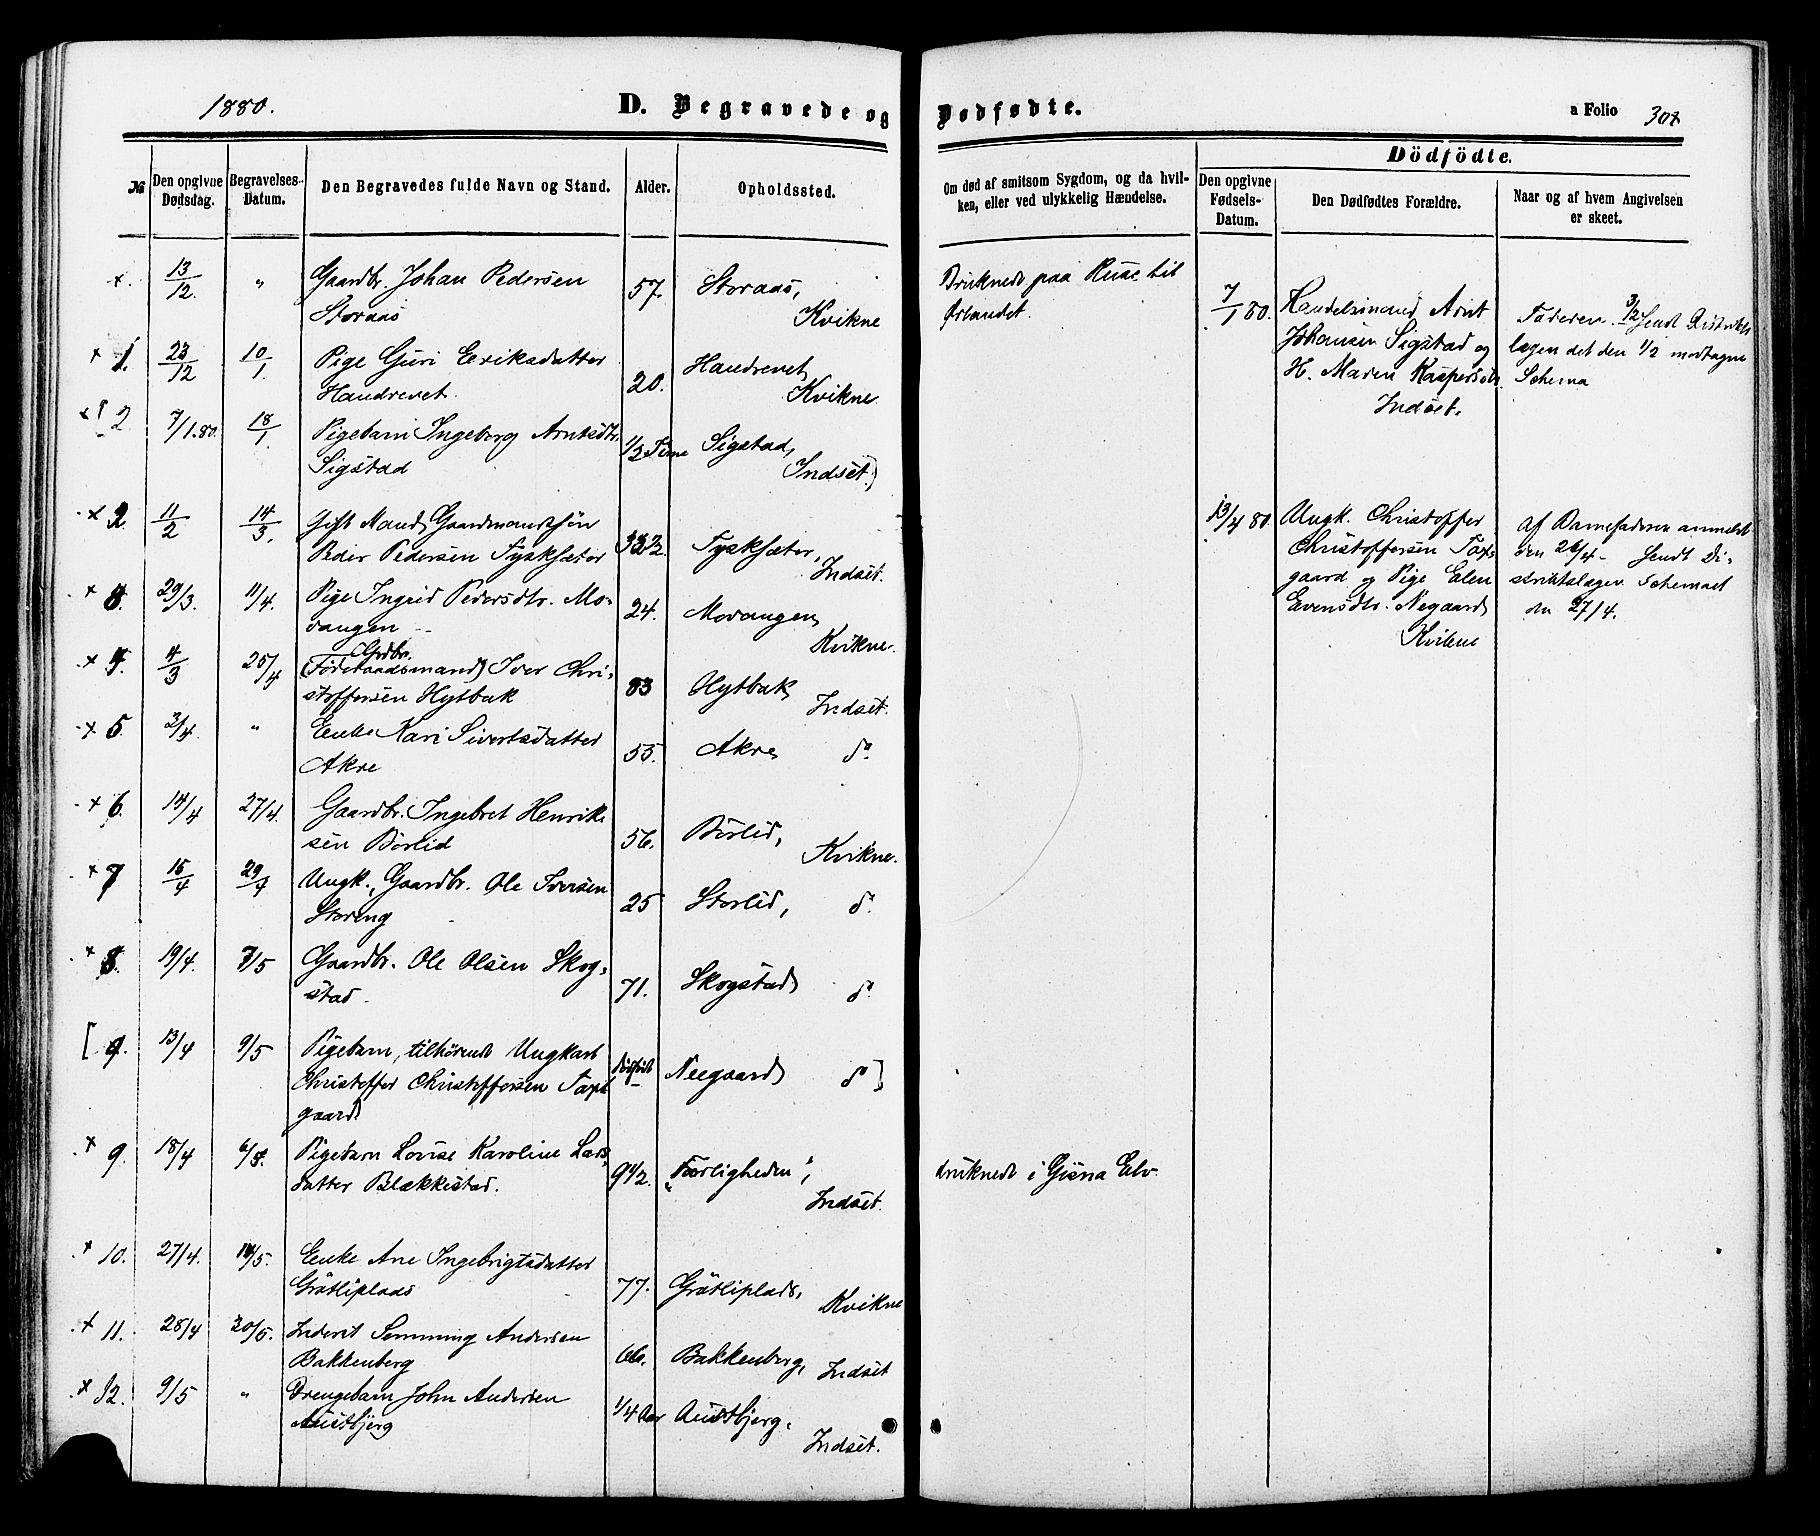 1880. D. Begravede og Dødfødte. a Folio 307
Dödfödte.
№ Den opgivne Dødsdag. Begravelses-Datum. Den Begravedes fulde Navn og Stand. Alder. Opholdssted. Om død af smitsom Sygdom, og da hvilken, eller ved ulykkelig Hændelse. Den opgivne Fødsels-Datum. Den Dødfødtes Forældre. Naar og af hvem Angivelsen er skeet.
+. 13/12. " Gaardbr. Johan Pedersen
Storaas 57. Storaas, Kvikne
Druknede paa Reise til
Ørlandet.
+ 1. 23/12 10/1. Pige Guri Eriksdatter
Handrevet. 20. Handrevet, Kvikne
2 7/1.80. 18/1. Pigebarn Ingeborg Arntsdtr.
Sigstad 1/2 Time Sigstad, Indset.)
+ 2. 11/2 14/3. Gift Mand, Gaardmandssøn
Peder Pedersen Tyskfsæter Tyskfsæter, Indset.
+ 3. 29/3. 11/4. Pige Ingrid Pedersdtr. Mo-
vangen 24. Movangen, Kvikne.
+ 4. 4/3 25/4 Grdbr.
(Føderaadsmand) Iver Chri-
stoffersen Hytbak 83 Hytbak, Indset.
+ 5. 3/4. " Enke Kari Sivertsdatter
Akre 55. Akre do.
+ 6. 14/4 27/4. Gaardbr. Ingebret Henrik-
sen Börlid 56. Börlid, Kvikne.
+ 7 15/4 29/4 Ungk., Gaardbr. Ole Iversen
Storeng 25 Storlid, do.
+ 8. 19/4. 7/5 Gaardbr. Ole Olsen Skog-
stad. 71. Skogstad do.
[ 9. 13/4 9/5 Pigebarn, tilhørende Ungkarl
Christoffer Christoffersen Taxt-
gaard dödfödt Neegaard do ]
+ 9. 18/4 6/5. Pigebarn Louise Karoline Lars-
datter Blækkestad. 9 1/2. "Færligheden", Indset.
druknede i Gisna Elv.
+ 10. 27/4. 14/5. Enke Ane Ingebrigtsdatter
Gråtliplads 77. Gråtliplads, Kvikne
+ 11. 28/4 20/5. Inderst Semming Andersen
Bakkenberg 66. Bakkenberg, Indset
+ 12. 9/5 " Drengebarn John Andersen
Austbjerg 1/4 Aar Austbjerg, Indset.
7/1 80. Handelsmand Arnt
Johansen Sigstad og
H. Maren Kaspersdtr.
Indset.
Faderen. 3/2 sendt Distrikts-
lægen det den 1/2 modtagne
Schema
13/4 80. Ungk. Christoffer
Christoffersen Taxt-
gaard og Pige Elen
Evensdtr. Negaard,
Kvikne
af Barnefaderen anmeldt
den 26/4 - Sendt Di-
striktslægen Schemaet
den 27/4.